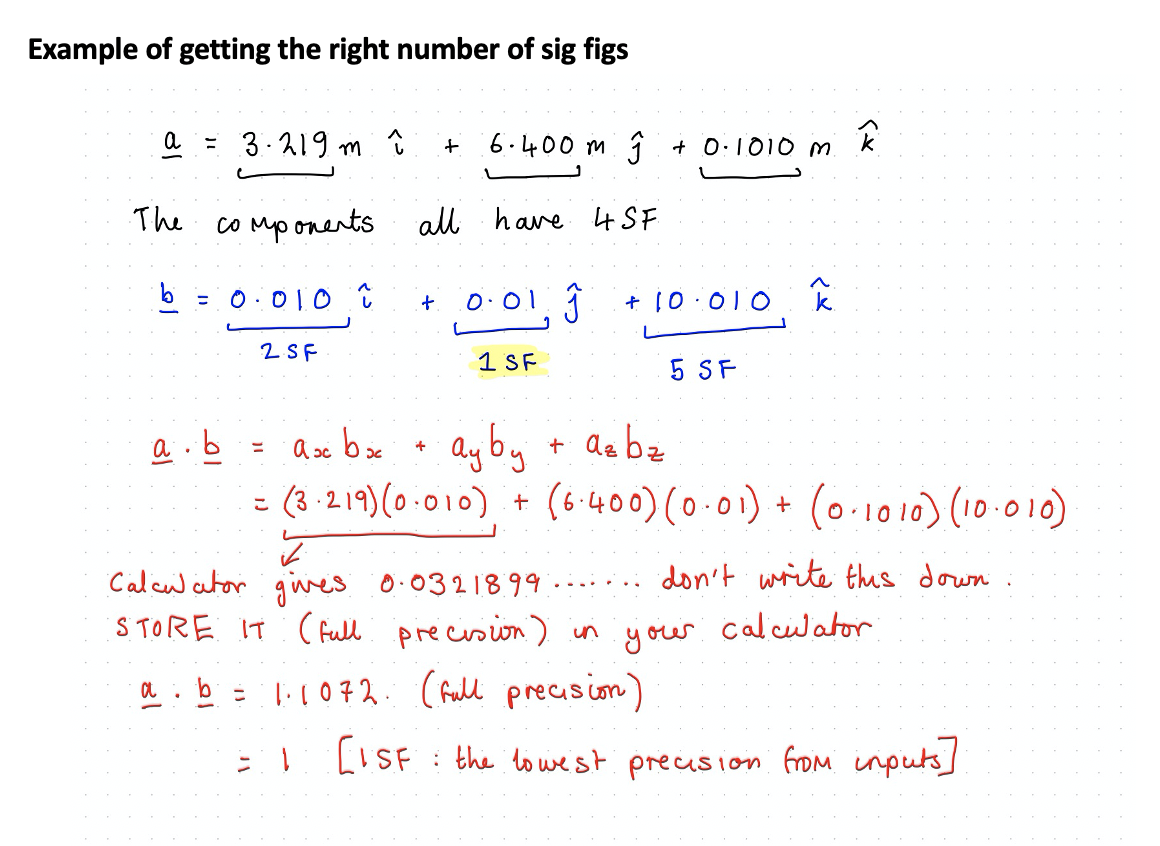 Example of getting the right number of sig figs
a = 3.219 m î + 6.400 m ĵ + 0.1010 m k̂
The components all have 4 SF
b = 0.010 î + 0.01 ĵ + 10.010 k̂
2 SF 1 SF 5 SF
a . b = axbx + ayby + azbz
= (3.219)(0.010) + (6.400)(0.01) + (0.1010)(10.010)
Calculator gives 0.0321899....... don't write this down.
STORE IT (full precision) in your calculator
a . b = 1.1072. (full precision)
= 1 [1SF : the lowest precision from inputs]